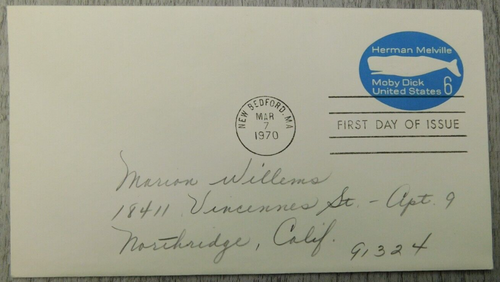 Herman Melville
Moby Dick
United States 6
NEW BEDFORD, MA
MAR
7
1970
FIRST DAY OF ISSUE
Marion Willems
18411 Vincennes St. - Apt. 9
Northridge, Calif.
91324